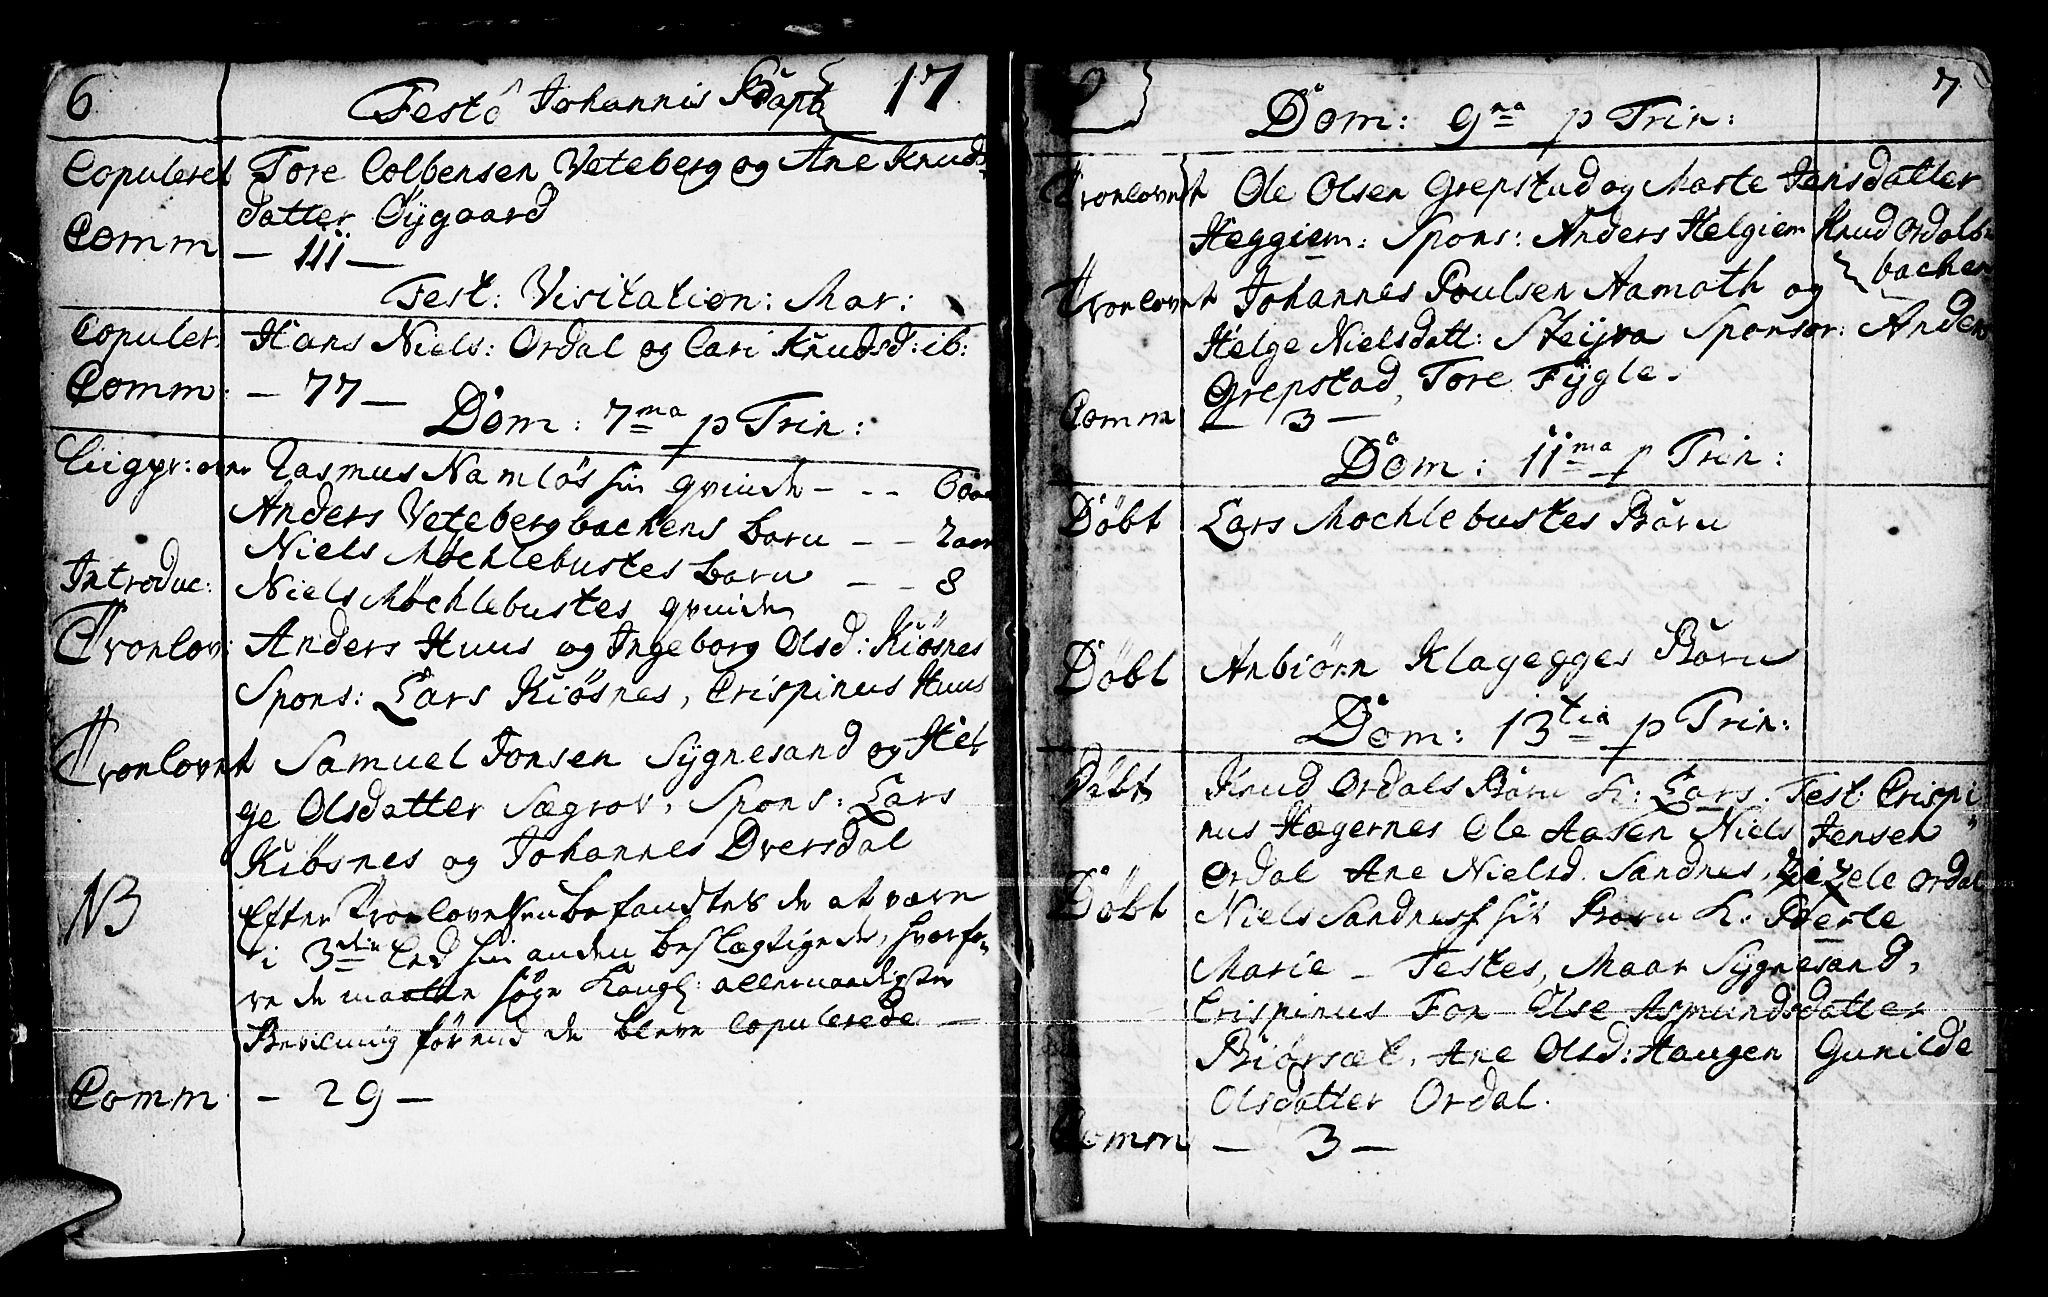 6 Festo Johannis Bapt 17
Copuleret Tore Colbensen Veteberg og Ane Knuds-
datter Øygaard
Comm — 111 —
Fest: Visitation: Mar:
Copuler: Hans Niels: Ordal og Cari Knudsd: ib:
Comm: — 77 —
Dom: 7ma p Trin:
Rasmus Namløs sin qvinde - - - 60
Anders Vetebergbachens barn - - 2 aar
Niels Møchlebustes barn - - 8
Introduc: Niels Møchlebustes qvinde
Trorlov: Anders Huus og Ingeborg Olsd: Kiøsnes
Spons: Lars Kiøsnes, Crispinus Huus
Trorlovet Samuel Jonsen Sygnesand og Hel-
ge Olsdatter Sægrov, Spons: Lars
Kiøsnes og Johannes Dversdal
NB Efter Trorlovelsen befandtes de at være
i 3die Led sin anden beslægtigede, hvorfo-
re de maatte søge Kongl: allernaadigste
Bevilning før end de bleve Copulerede —
Comm — 29 —
7
Dom: 9na p Trin:
Trorlovet Ole Olsen Grepstad og Marte Jensdatter
Heggiem: Spons: Anders Helgiem Knud Ordals-
bachen
Trorlovet Johannes Poulsen Aamoth og
Helge Nielsdatt: Steijva Sponsor: Anders
Grepstad, Tore Fygle.
Comm — 3 —
Dom: 11ma p Trin:
Døbt Lars Mochlebustes Barn
Døbt Anbiørn Klagegges Barn
Dom: 13tia p Trin:
Døbt Knud Ordals Barn k: Lars. Test: Crispi-
nus Hægernes Ole Aasen Niels Jensen
Ordal Ane Nielsd. Sandnes, Zizele Ordal
Døbt Niels Sandnes sit Barn k: Berte
Marie — Testes, Maar Sygnesand,
Crispinus Fon Else Asmundsdatter
Biørsæt, Ane Olsd: Haugen Gunilde
Olsdatter Ordal.
Comm — 3 —